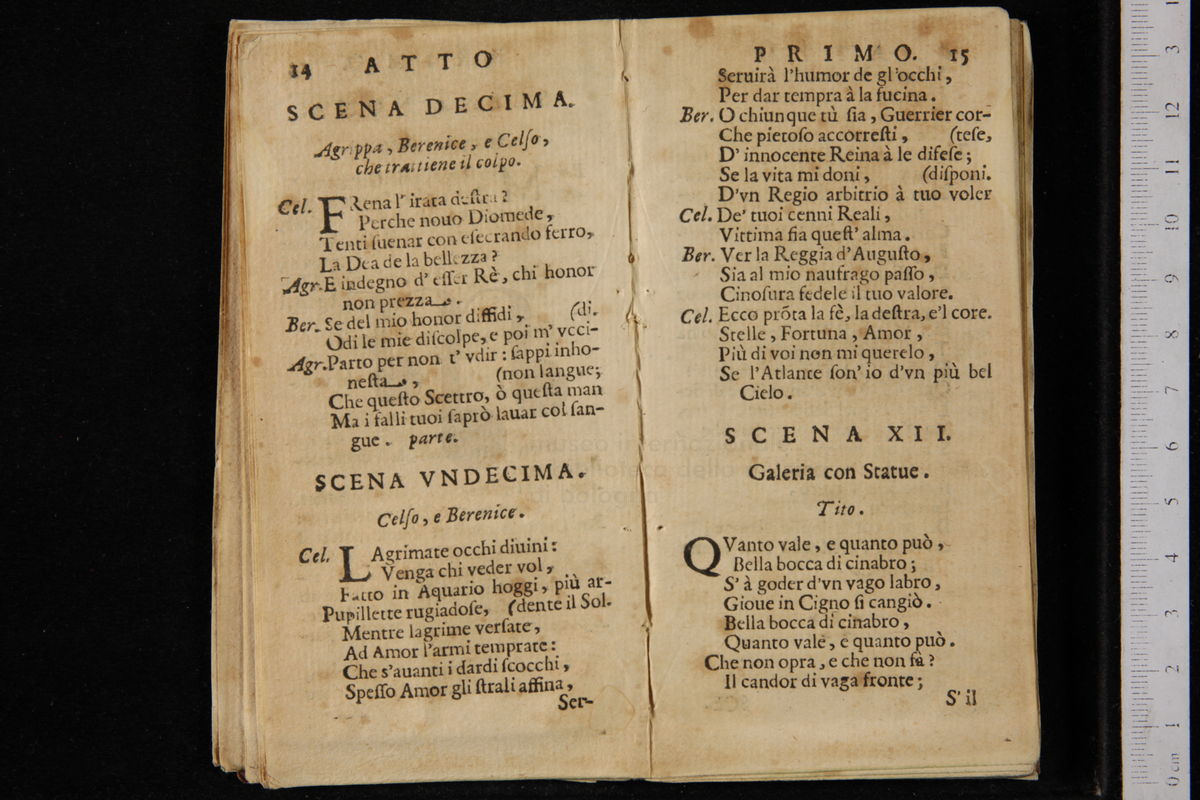 14 ATTO
SCENA DECIMA.
Agrippa, Berenice, e Celſo,
che trattiene il colpo.
Cel. FRena l' irata deſtra?
Perche nouo Diomede,
Tenti ſuenar con eſecrando ferro,
La Dea de la bellezza?
Agr. E indegno d' eſſer Rè, chi honor
non prezza.
Ber. Se del mio honor diffidi, (di.
Odi le mie diſcolpe, e poi m' vcci-
Agr. Parto per non t' vdir: ſappi inho-
neſta, (non langue;
Che queſto Scettro, ò queſta man
Ma i falli tuoi ſaprò lauar col ſan-
gue. parte.
SCENA VNDECIMA.
Celſo, e Berenice.
Cel. LAgrimate occhi diuini:
Venga chi veder vol,
Fatto in Aquario hoggi, più ar-
Pupillette rugiadoſe, (dente il Sol.
Mentre lagrime verſate,
Ad Amor l'armi temprate:
Che s'auanti i dardi ſcocchi,
Speſſo Amor gli ſtrali affina,
Ser-
PRIMO. 15
Seruirà l'humor de gl'occhi,
Per dar tempra à la fucina.
Ber. O chiunque tù ſia, Guerrier cor-
Che pietoſo accorreſti, (teſe,
D' innocente Reina à le difeſe;
Se la vita mi doni, (diſponi.
D'vn Regio arbitrio à tuo voler
Cel. De' tuoi cenni Reali,
Vittima ſia queſt' alma.
Ber. Ver la Reggia d'Auguſto,
Sia al mio naufrago paſſo,
Cinoſura fedele il tuo valore.
Cel. Ecco prõta la fè, la deſtra, e'l core.
Stelle, Fortuna, Amor,
Più di voi non mi querelo,
Se l'Atlante ſon' io d'vn più bel
Cielo.
SCENA XII.
Galeria con Statue.
Tito.
QVanto vale, e quanto può,
Bella bocca di cinabro;
S' à goder d'vn vago labro,
Gioue in Cigno ſi cangiò.
Bella bocca di cinabro,
Quanto vale, e quanto può.
Che non opra, e che non fà?
Il candor di vaga fronte;
S' il
0 cm 1 2 3 4 5 6 7 8 9 10 11 12